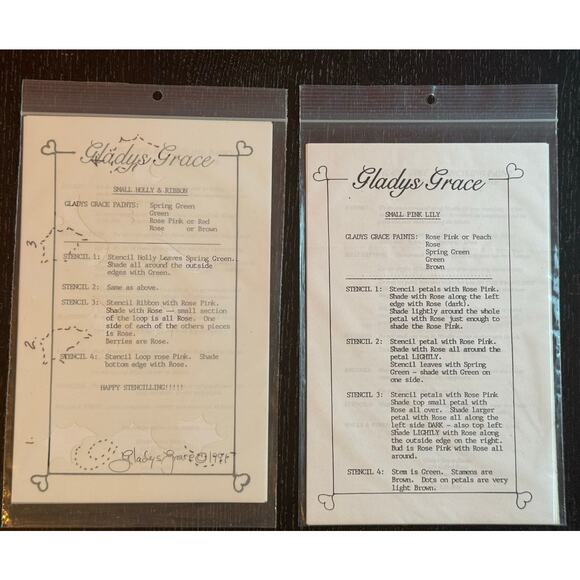 Gladys Grace
SMALL HOLLY & RIBBON
GLADYS GRACE PAINTS: Spring Green
Green
Rose Pink or Red
Rose or Brown
3.
STENCIL 1: Stencil Holly Leaves Spring Green.
Shade all around the outside
edges with Green.
STENCIL 2: Same as above.
STENCIL 3: Stencil Ribbon with Rose Pink.
Shade with Rose — small section
of the loop is all Rose. One
side of each of the others pieces
is Rose.
Berries are Rose.
2.
STENCIL 4: Stencil Loop rose Pink. Shade
bottom edge with Rose.
HAPPY STENCILLING!!!!!
1.
Gladys Grace ©
Gladys Grace
SMALL PINK LILY
GLADYS GRACE PAINTS: Rose Pink or Peach
Rose
Spring Green
Green
Brown
STENCIL 1: Stencil petals with Rose Pink.
Shade with Rose along the left
edge with Rose (dark).
Shade lightly around the whole
petal with Rose just enough to
shade the Rose Pink.
STENCIL 2: Stencil petal with Rose Pink.
Shade with Rose all around the
petal LIGHTLY.
Stencil leaves with Spring
Green - shade with Green on
one side.
STENCIL 3: Stencil petals with Rose Pink
Shade top small petal with
Rose all over. Shade larger
petal with Rose all along the
left side DARK - also top left
Shade LIGHTLY with Rose along
the outside edge on the right.
Bud is Rose Pink with Rose all
around.
STENCIL 4: Stem is Green. Stamens are
Brown. Dots on petals are very
light Brown.